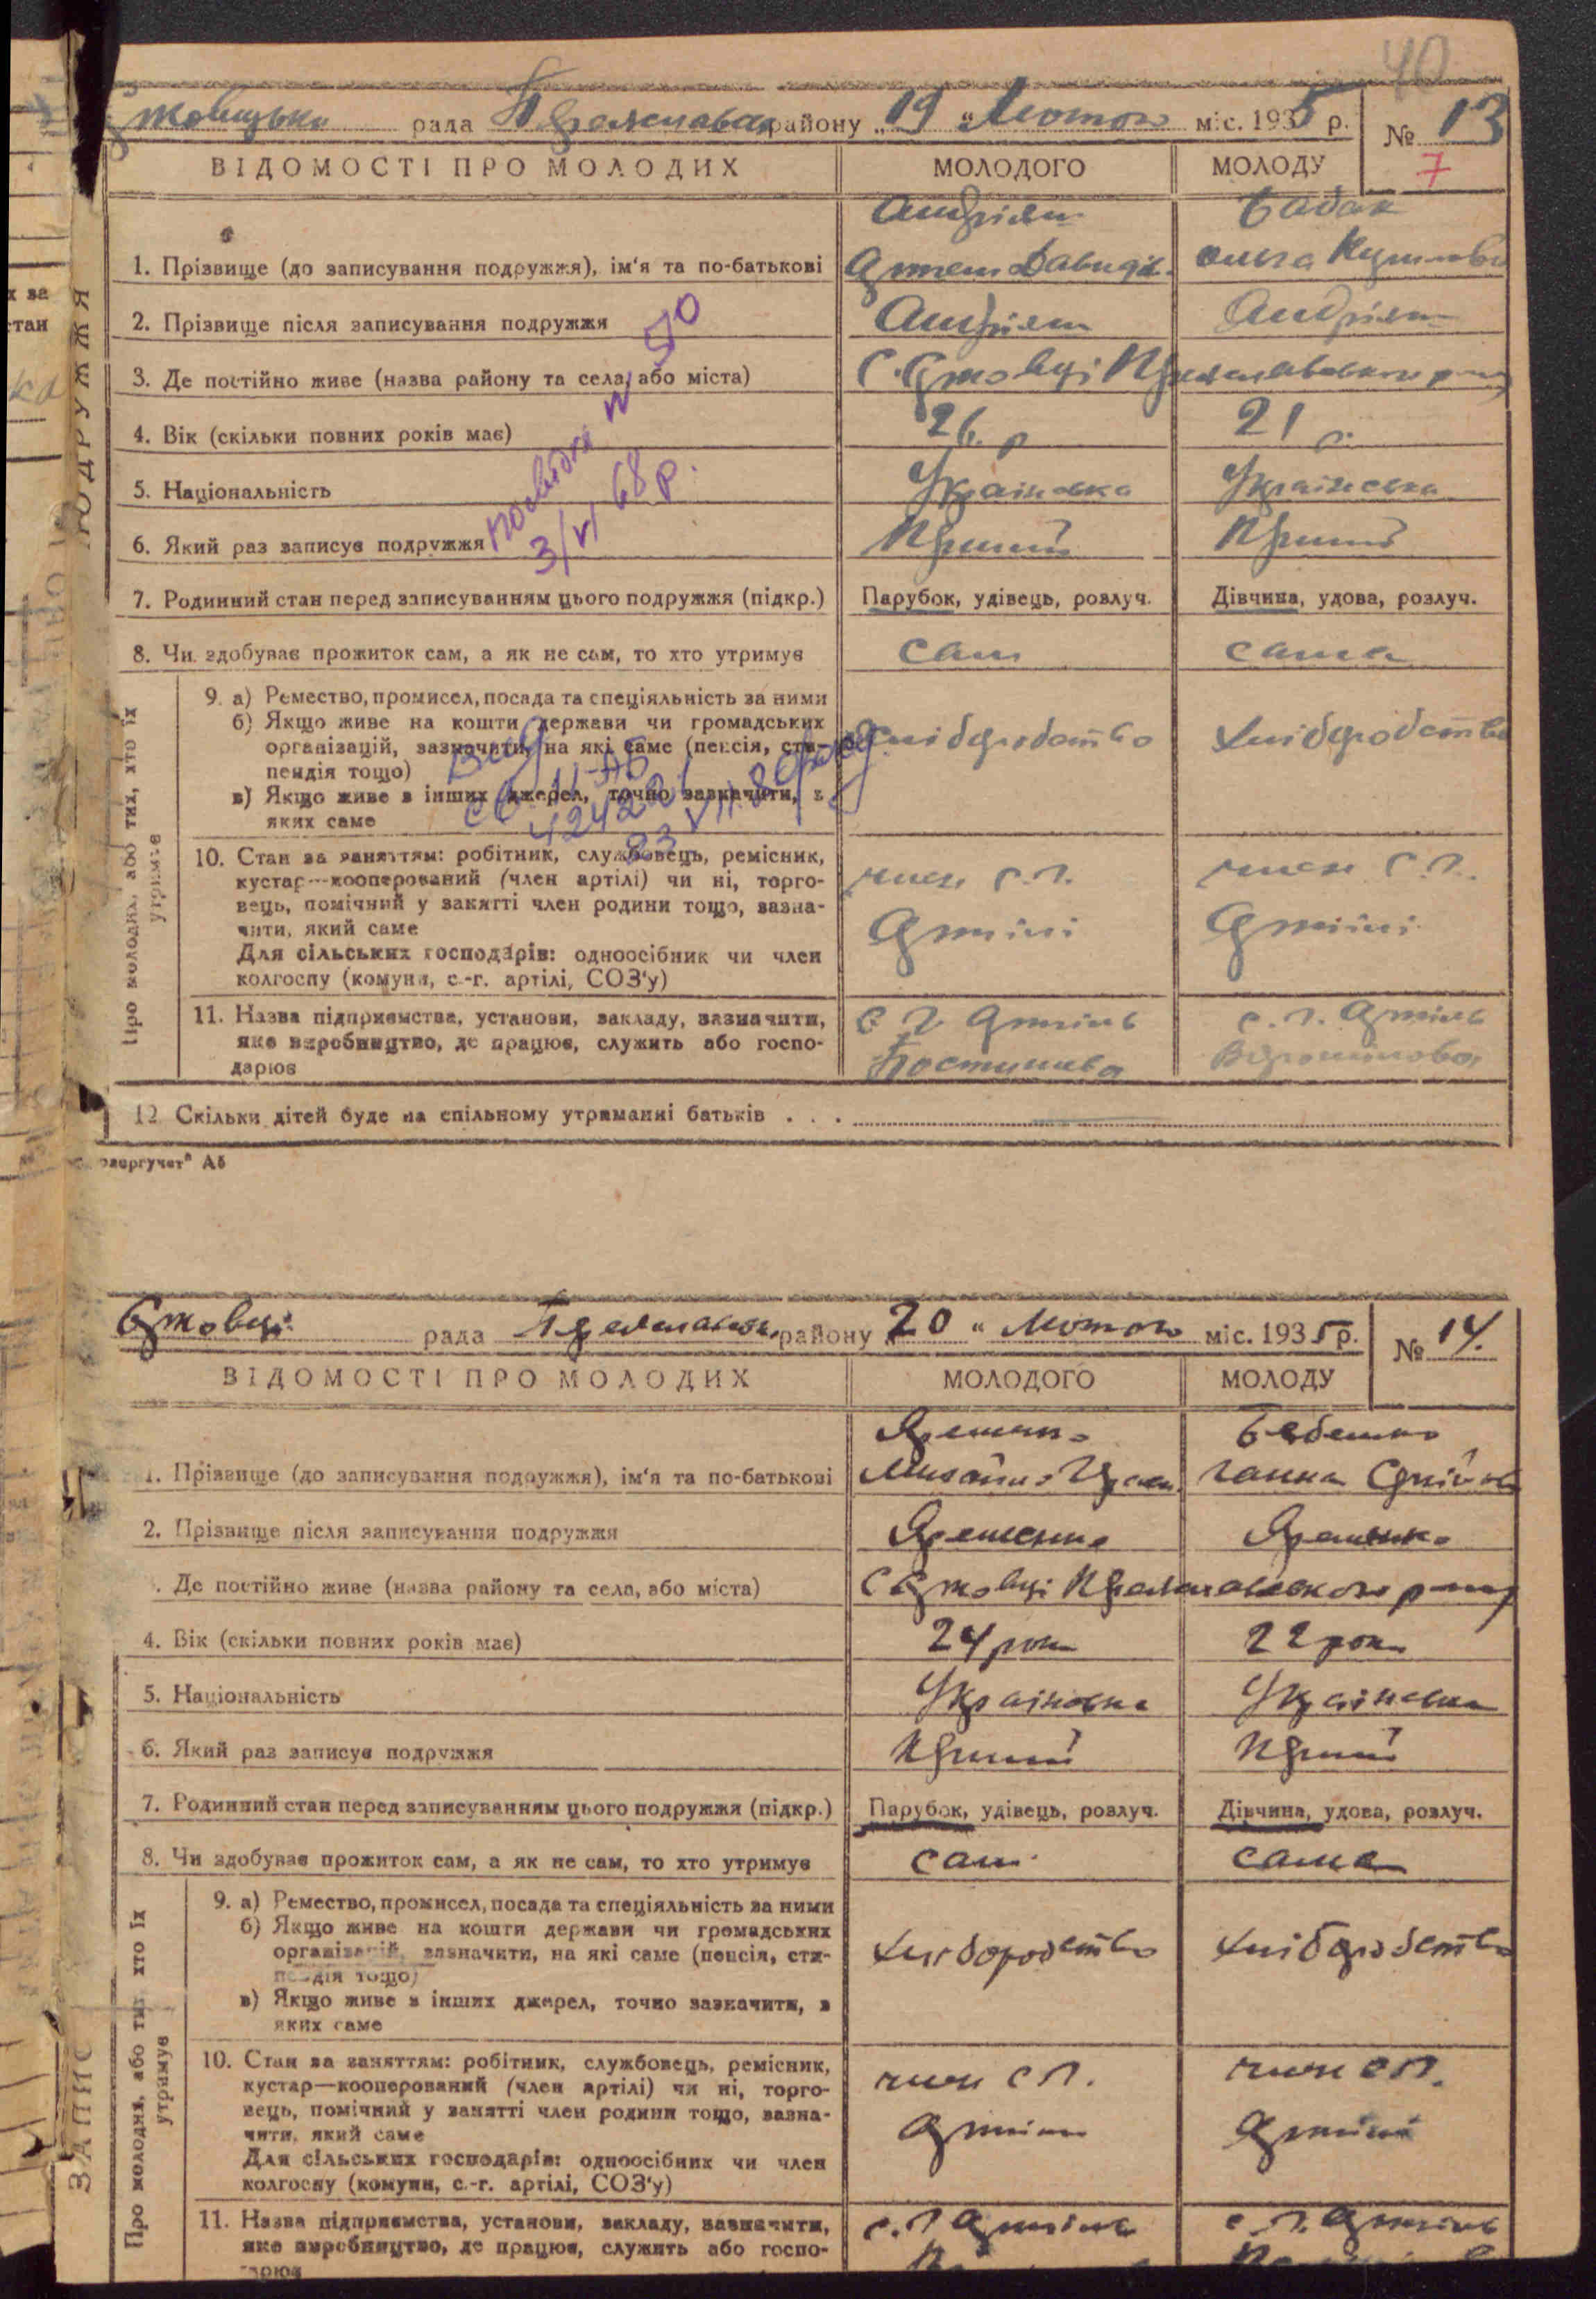 40
рада району „19 “ Лютого міс. 1935 р. № 13
ВІДОМОСТІ ПРО МОЛОДИХ МОЛОДОГО МОЛОДУ 7
Андріяш Бабак
1. Прізвище (до записування подружжя), ім'я та по-батькові Артем Давидів. Ольга
2. Прізвище після записування подружжя Андріяш Андріяш
3. Де постійно живе (назва району та села, або міста) С.
4. Вік (скільки повних років має) 26. р 21 р.
5. Національність Українська Українська
6. Який раз записує подружжя Перший Перший
посвідка № 50
3/VI 68 р.
7. Родинний стан перед записуванням цього подружжя (підкр.) Парубок, удівець, розлуч. Дівчина, удова, розлуч.
8. Чи здобуває прожиток сам, а як не сам, то хто утримує сам сама
Про молодих, або тих, хто їх утримує
9. а) Ремество, промисел, посада та спеціяльність за ними
б) Якщо живе на кошти держави чи громадських хліборобство хліборобство
організацій, зазначити, на які саме (пенсія, сти-
пендія тощо)
в) Якщо живе з інших джерел, точно зазначити, з
яких саме
10. Стан за заняттям: робітник, службовець, ремісник,
кустар—кооперований (член артілі) чи ні, торго- член с.г. член с.г.
вець, помічний у занятті член родини тощо, зазна-
чити, який саме Артілі Артілі
Для сільських господарів: одноосібник чи член
колгоспу (комуни, с.-г. артілі, СОЗ'у)
11. Назва підприємства, установи, закладу, зазначити, с г Артіль с.г. Артіль
яке виробництво, де працює, служить або госпо-
дарює Постишева Ворошилова
12 Скільки дітей буде на спільному утриманні батьків . . .
рада району „20 “ Лютого міс. 1935 р. № 14.
ВІДОМОСТІ ПРО МОЛОДИХ МОЛОДОГО МОЛОДУ
Яременко
1. Прізвище (до записування подружжя), ім'я та по-батькові Михайло Ганна
2. Прізвище після записування подружжя Яременко Яременко
. Де постійно живе (назва району та села, або міста) С
4. Вік (скільки повних років має) 24 роки 22 роки
5. Національність Українська Українська
6. Який раз записує подружжя Перший Перший
7. Родинний стан перед записуванням цього подружжя (підкр.) Парубок, удівець, розлуч. Дівчина, удова, розлуч.
8. Чи здобуває прожиток сам, а як не сам, то хто утримує сам сама
Про молодих, або тих, хто їх утримує
9. а) Ремество, промисел, посада та спеціяльність за ними
б) Якщо живе на кошти держави чи громадських
організацій, зазначити, на які саме (пенсія, сти- хліборобство хліборобство
пендія тощо)
в) Якщо живе з інших джерел, точно зазначити, з
яких саме
10. Стан за заняттям: робітник, службовець, ремісник,
кустар—кооперований (член артілі) чи ні, торго- член с г. член с г.
вець, помічний у занятті член родини тощо, зазна-
чити, який саме Артілі Артілі
Для сільських господарів: одноосібник чи член
колгоспу (комуни, с.-г. артілі, СОЗ'у)
11. Назва підприємства, установи, закладу, зазначити, с.г Артіль с.г. Артіль
яке виробництво, де працює, служить або госпо-
дарює
ЗАПИС
ПОДРУЖЖЯ